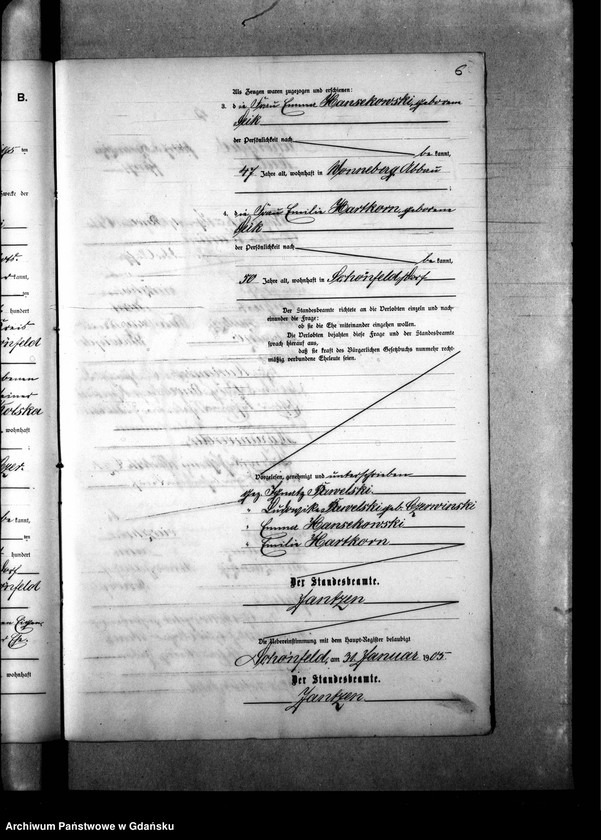 B.
6
Als Zeugen waren zugezogen und erschienen:
3. die Frau Emma Hansekowski, geborene
der Persönlichkeit nach
be kannt,
47 Jahre alt, wohnhaft in Wonneberg Abbau
;
4. die Frau Emilie Hartkorn geborene
der Persönlichkeit nach
be kannt,
50 Jahre alt, wohnhaft in Schönfeld Dorf
Der Standesbeamte richtete an die Verlobten einzeln und nach-
einander die Frage:
ob sie die Ehe miteinander eingehen wollen.
Die Verlobten bejahten diese Frage und der Standesbeamte
sprach hierauf aus,
daß sie kraft des Bürgerlichen Gesetzbuchs nunmehr recht-
mäßig verbundene Eheleute seien.
Vorgelesen, genehmigt und unterschrieben
gez. Ignatz
" Ludowika geb. Czerwinski
" Emma Hansekowski
" Emilie Hartkorn
Der Standesbeamte.
Jantzen
Die Uebereinstimmung mit dem Haupt-Register beglaubigt
Schönfeld, am 31. Januar 1905.
Der Standesbeamte.
Jantzen
ten
zwecke der
kannt,
hundert
wohnhaft
;
be kannt,
ten
hundert
wohnhaft
Archiwum Państwowe w Gdańsku